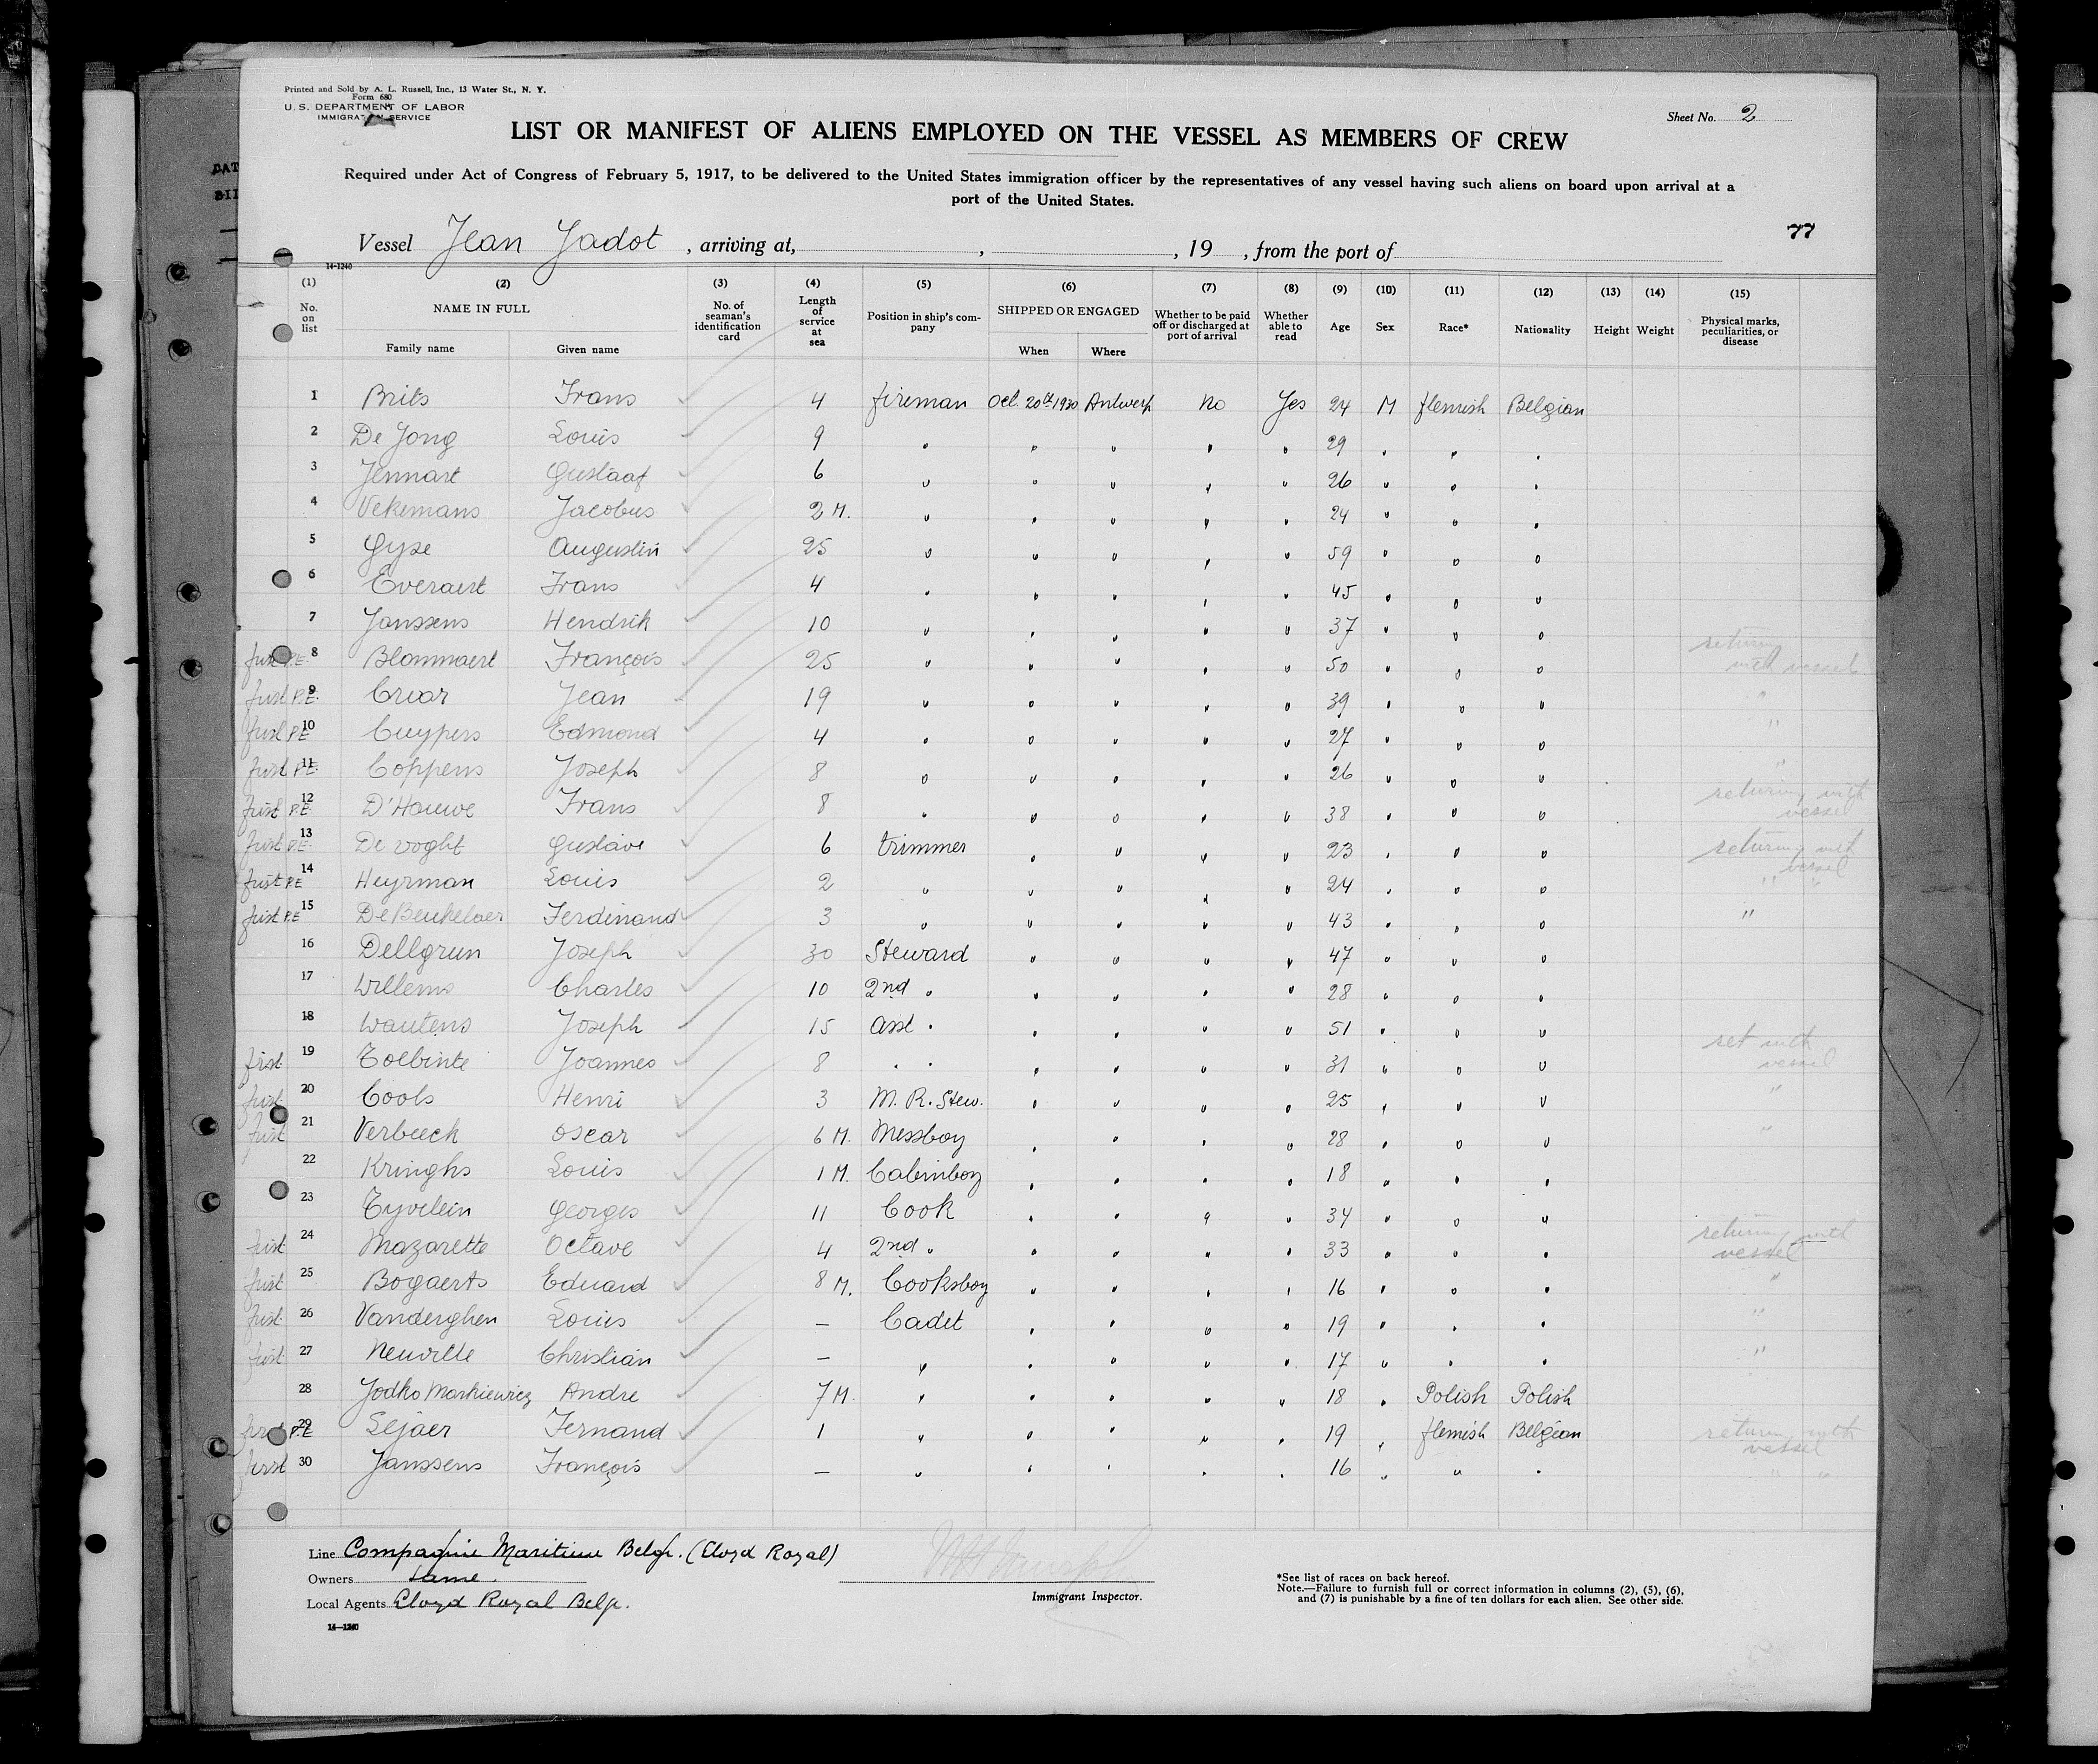 Printed and Sold by A. L. Russell, Inc., 13 Water St., N. Y.
Form 680
U. S. DEPARTMENT OF LABOR
IMMIGRATION SERVICE
Sheet No. 2
LIST OR MANIFEST OF ALIENS EMPLOYED ON THE VESSEL AS MEMBERS OF CREW
Required under Act of Congress of February 5, 1917, to be delivered to the United States immigration officer by the representatives of any vessel having such aliens on board upon arrival at a
port of the United States.
77
Vessel Jean Jadot , arriving at, , , 19 , from the port of
14-1240
(1) No. on list (2) NAME IN FULL Family name Given name (3) No. of seaman's identification card (4) Length of service at sea (5) Position in ship's company (6) SHIPPED OR ENGAGED When Where (7) Whether to be paid off or discharged at port of arrival (8) Whether able to read (9) Age (10) Sex (11) Race* (12) Nationality (13) Height (14) Weight (15) Physical marks, peculiarities, or disease
1 Brits Frans 4 fireman Oct. 20th 1930 Antwerp No Yes 24 M flemish Belgian
2 De Jong Louis 9 " " " " " 29 " " "
3 Jennart Gustaaf 6 " " " " " 26 " " "
4 Vekemans Jacobus 2 M. " " " " " 24 " " "
5 Gyse Augustin 25 " " " " " 59 " " "
6 Everaert Frans 4 " " " " " 45 " " "
7 Janssens Hendrik 10 " " " " " 37 " " "
first P.E. 8 Blommaert François 25 " " " " " 50 " " " returning with vessel
first P.E. 9 Crear Jean 19 " " " " " 39 " " " "
first P.E. 10 Cuypers Edmond 4 " " " " " 27 " " " "
first P.E. 11 Coppens Joseph 8 " " " " " 26 " " " "
first P.E. 12 D'Hauwe Frans 8 " " " " " 38 " " " returning with vessel
first P.E. 13 De voght Gustave 6 trimmer " " " " 23 " " " returning with vessel
first P.E. 14 Heyrman Louis 2 " " " " " 24 " " " " "
first P.E. 15 De Beukelaer Ferdinand 3 " " " " " 43 " " " "
16 Dellgrun Joseph 30 Steward " " " " 47 " " "
17 Willems Charles 10 2nd " " " " " 28 " " "
18 Wautens Joseph 15 asst " " " " " 51 " " "
first 19 Tolbinte Joannes 8 " " " " " " 31 " " " ret with vessel
first 20 Cools Henri 3 M. R. Stew. " " " " 25 " " " "
first 21 Verbeeck Oscar 6 M. Messboy " " " " 28 " " " "
22 Kringhs Louis 1 M. Cabinboy " " " " 18 " " "
23 Tyvelein Georges 11 Cook " " " " 34 " " "
first 24 Mazarette Octave 4 2nd " " " " " 33 " " " returning with vessel
first 25 Bogaerts Eduard 8 M. Cooksboy " " " " 16 " " " "
first 26 Vanderghen Louis — Cadet " " " " 19 " " " "
first 27 Neuville Christian — " " " " " 17 " " " "
28 Jodko Markiewicz Andre 7 M. " " " " " 18 " Polish Polish
first P.E 29 Sejaer Fernand 1 " " " " " 19 " flemish Belgian returning with vessel
first 30 Janssens François — " " " " " 16 " " " " "
Line Compagnie Maritime Belge. (Lloyd Royal)
Owners Same.
Local Agents Lloyd Royal Belge.
14—1240
Immigrant Inspector.
*See list of races on back hereof.
Note.—Failure to furnish full or correct information in columns (2), (5), (6),
and (7) is punishable by a fine of ten dollars for each alien. See other side.